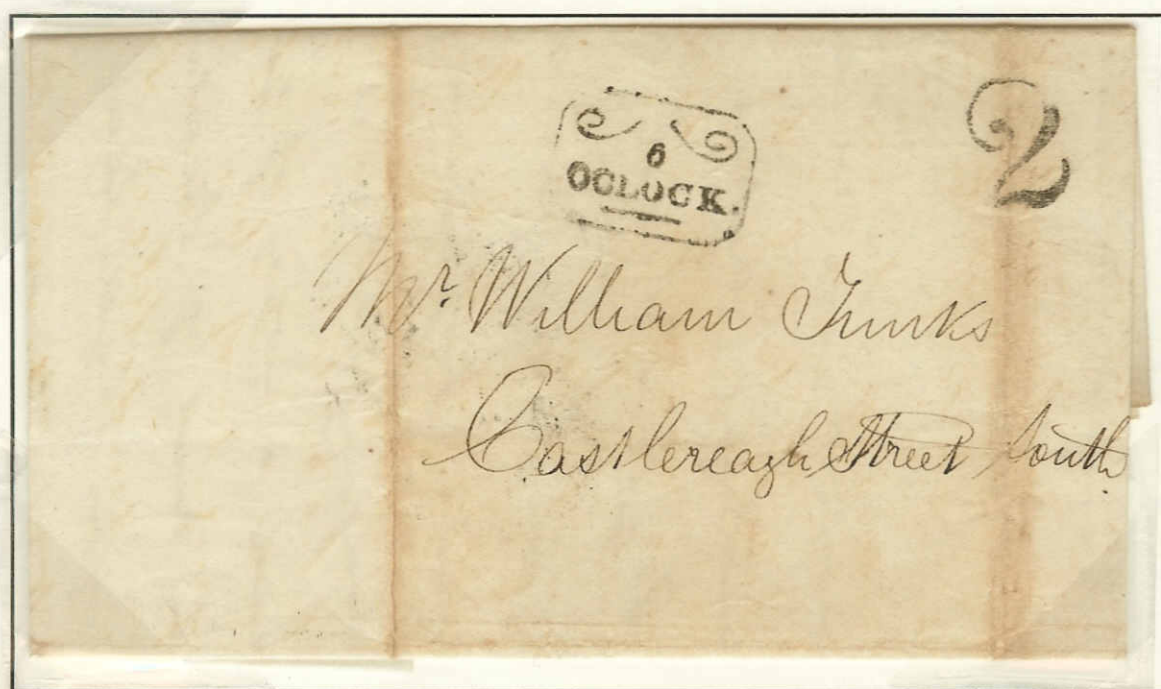 2
6
OCLOCK.
Mr. William Tunks
Castlereagh Street South